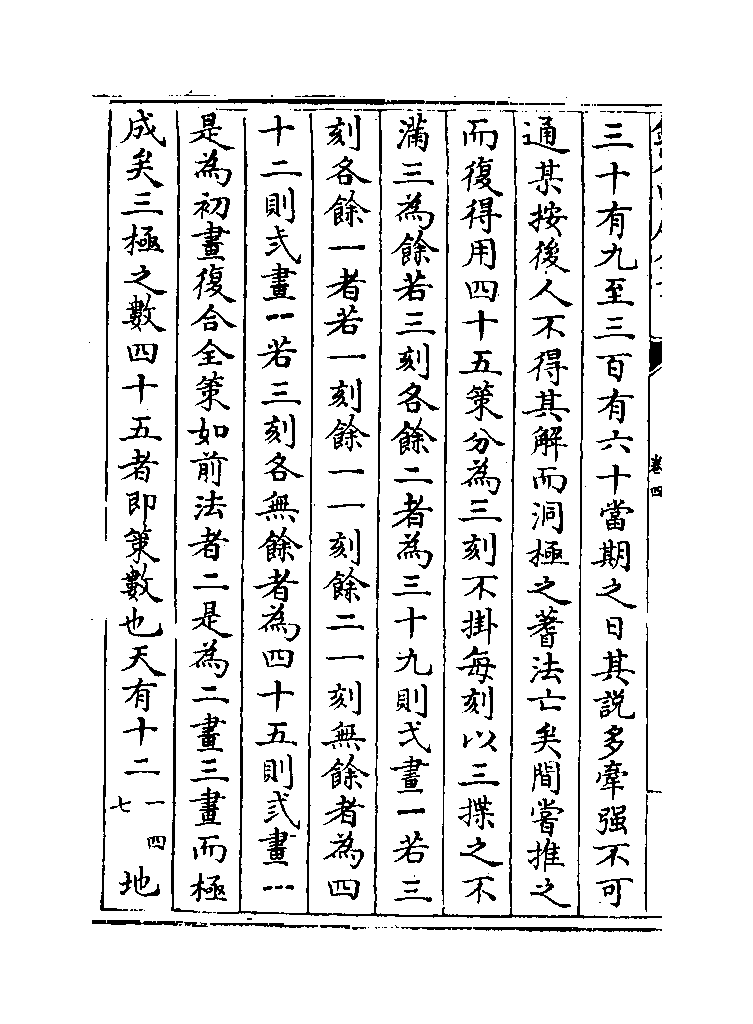 三十有九至三百有六十當期之日其説多牽强不可
通某按後人不得其解而洞極之蓍法亡矣間嘗推之
而復得用四十五策分為三刻不掛每刻以三揲之不
滿三為餘若三刻各餘二者為三十九則弌畫一若三
刻各餘一者若一刻餘一一刻餘二一刻無餘者為四
十二則弍畫一一若三刻各無餘者為四十五則弎畫一一一
是為初畫復合全策如前法者二是為二畫三畫而極
成矣三極之數四十五者即策數也天有十二一四七地
卷四